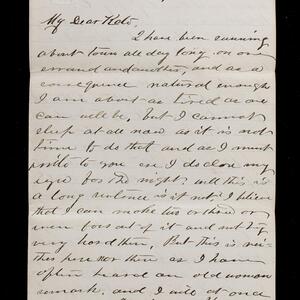 My Dear Kate.
I have been running
about town all day long, on one
errand and another, and as a
consequence natural enough
I am about as tired as one
can well be, but I cannot
sleep at all now as it is not
time to do that and as I must
write to you ere I do close my
eyes for the night. Well this is
a long sentence is it not. I believe
that I can make two or three or
even four out of it and not try
very hard then. But this is nei-
ther here nor there as I have
often heard an old woman
remark, and I will at once